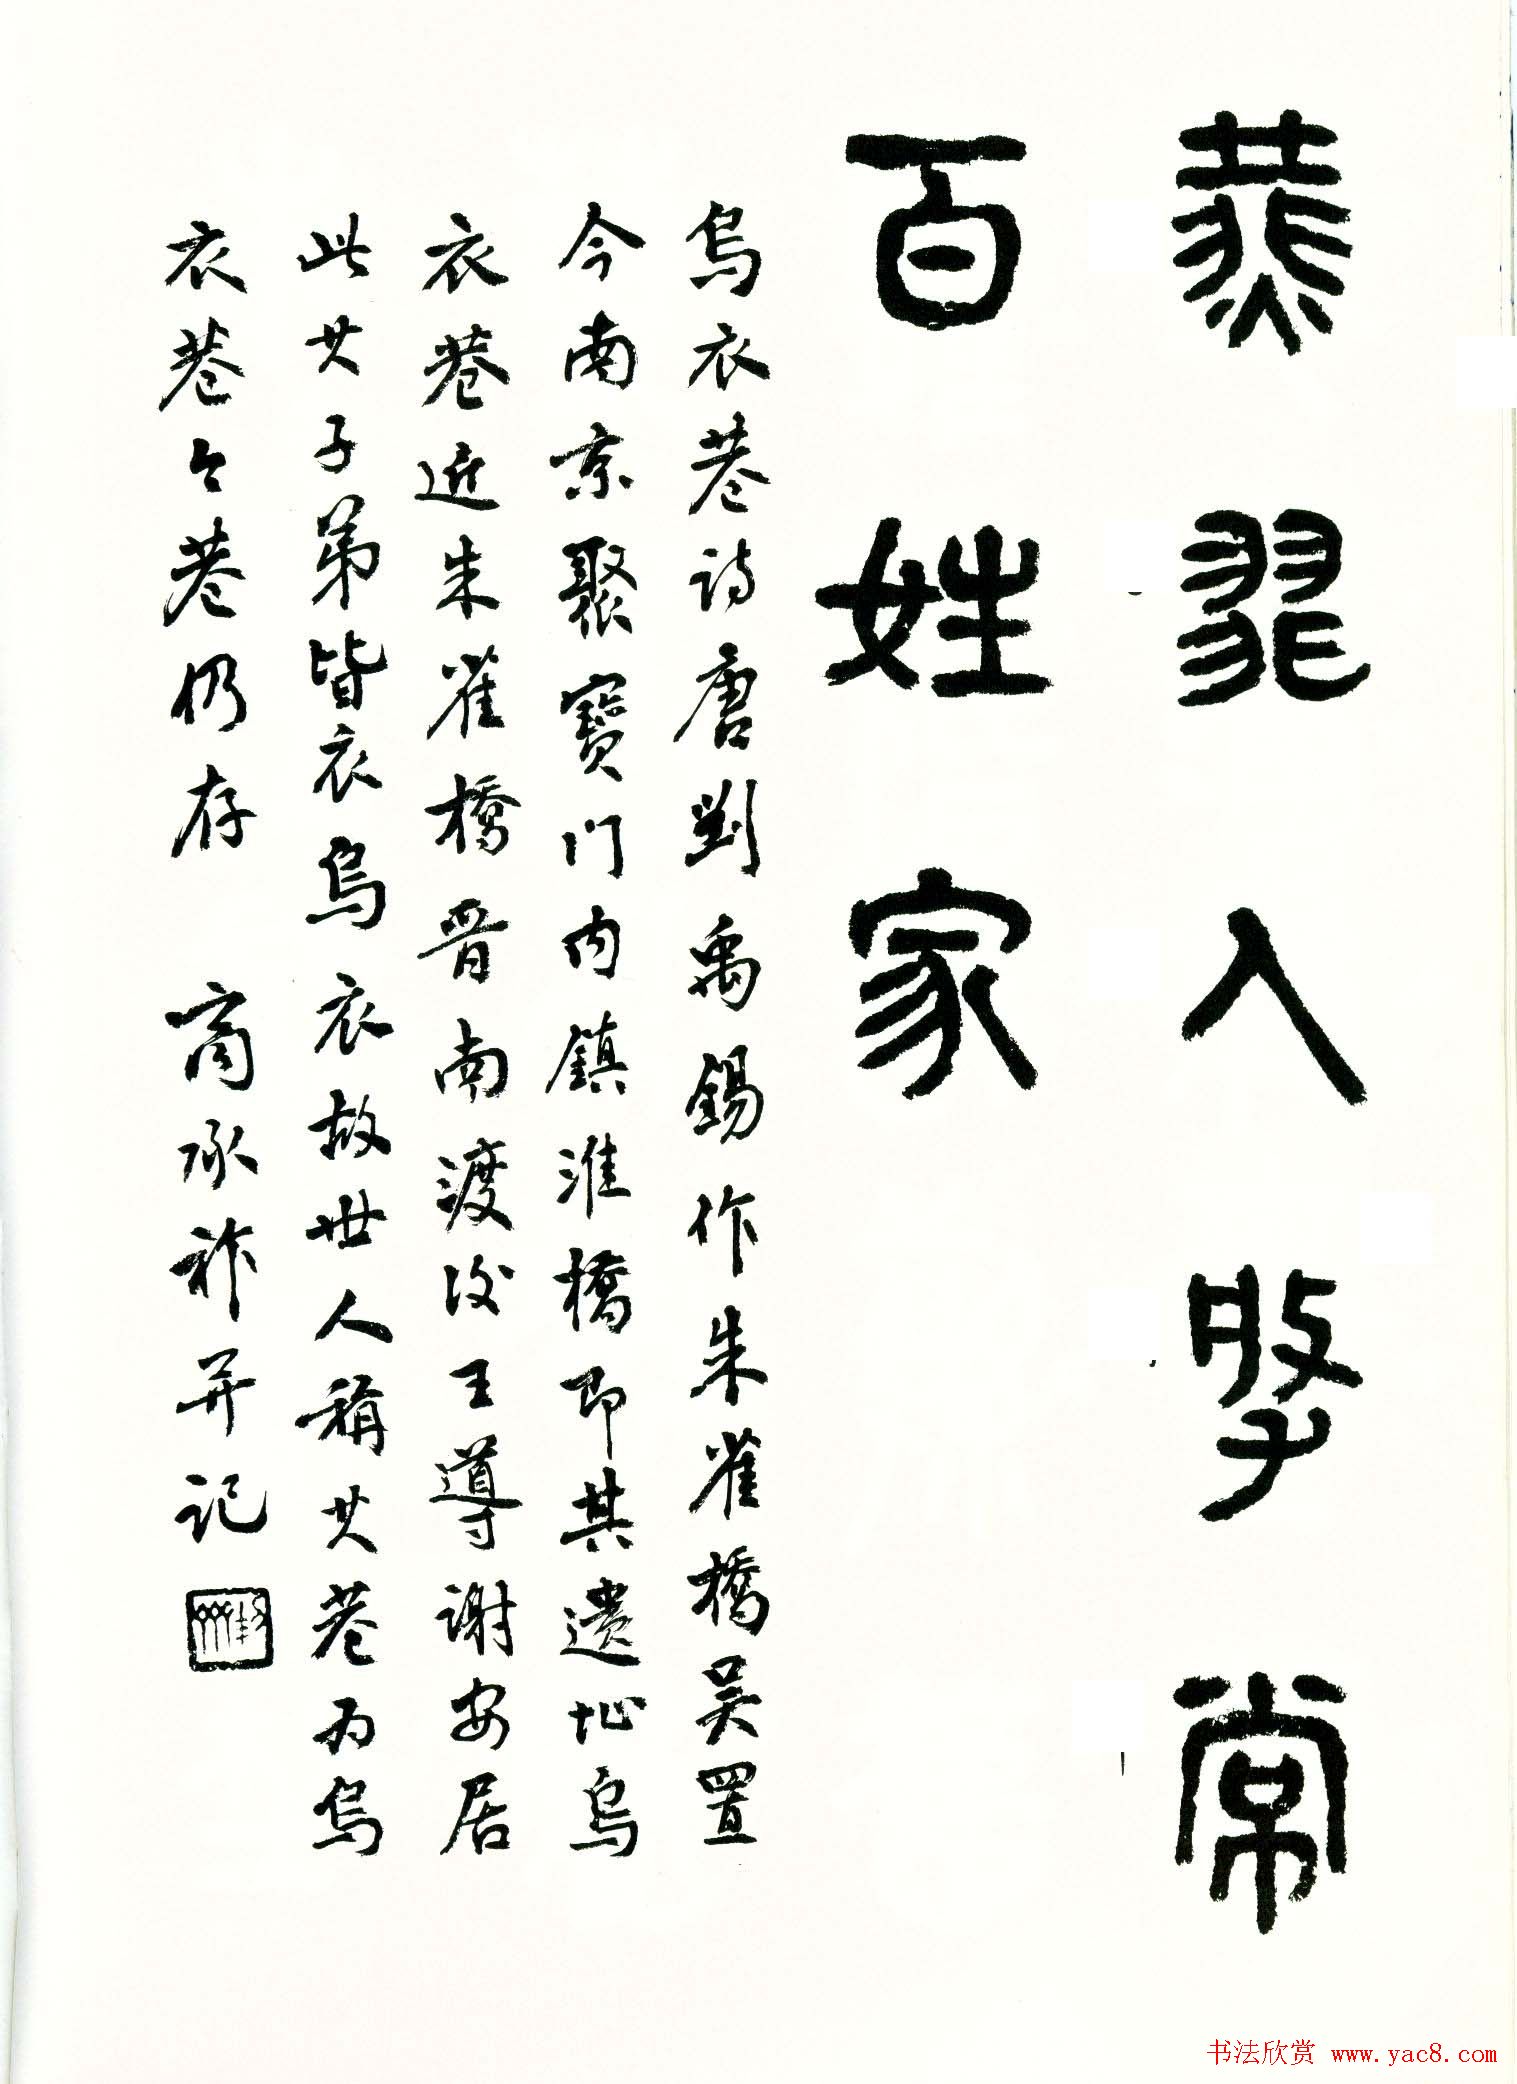 燕飛入尋常
百姓家
烏衣巷詩唐劉禹錫作朱雀橋吳置
今南京聚寶門內鎮淮橋即其遺址烏
衣巷近朱雀橋晋南渡後王導謝安居
此其子弟皆衣烏衣故世人稱其巷為烏
衣巷今巷仍存 商承祚并記
书法欣赏 www.yac8.com